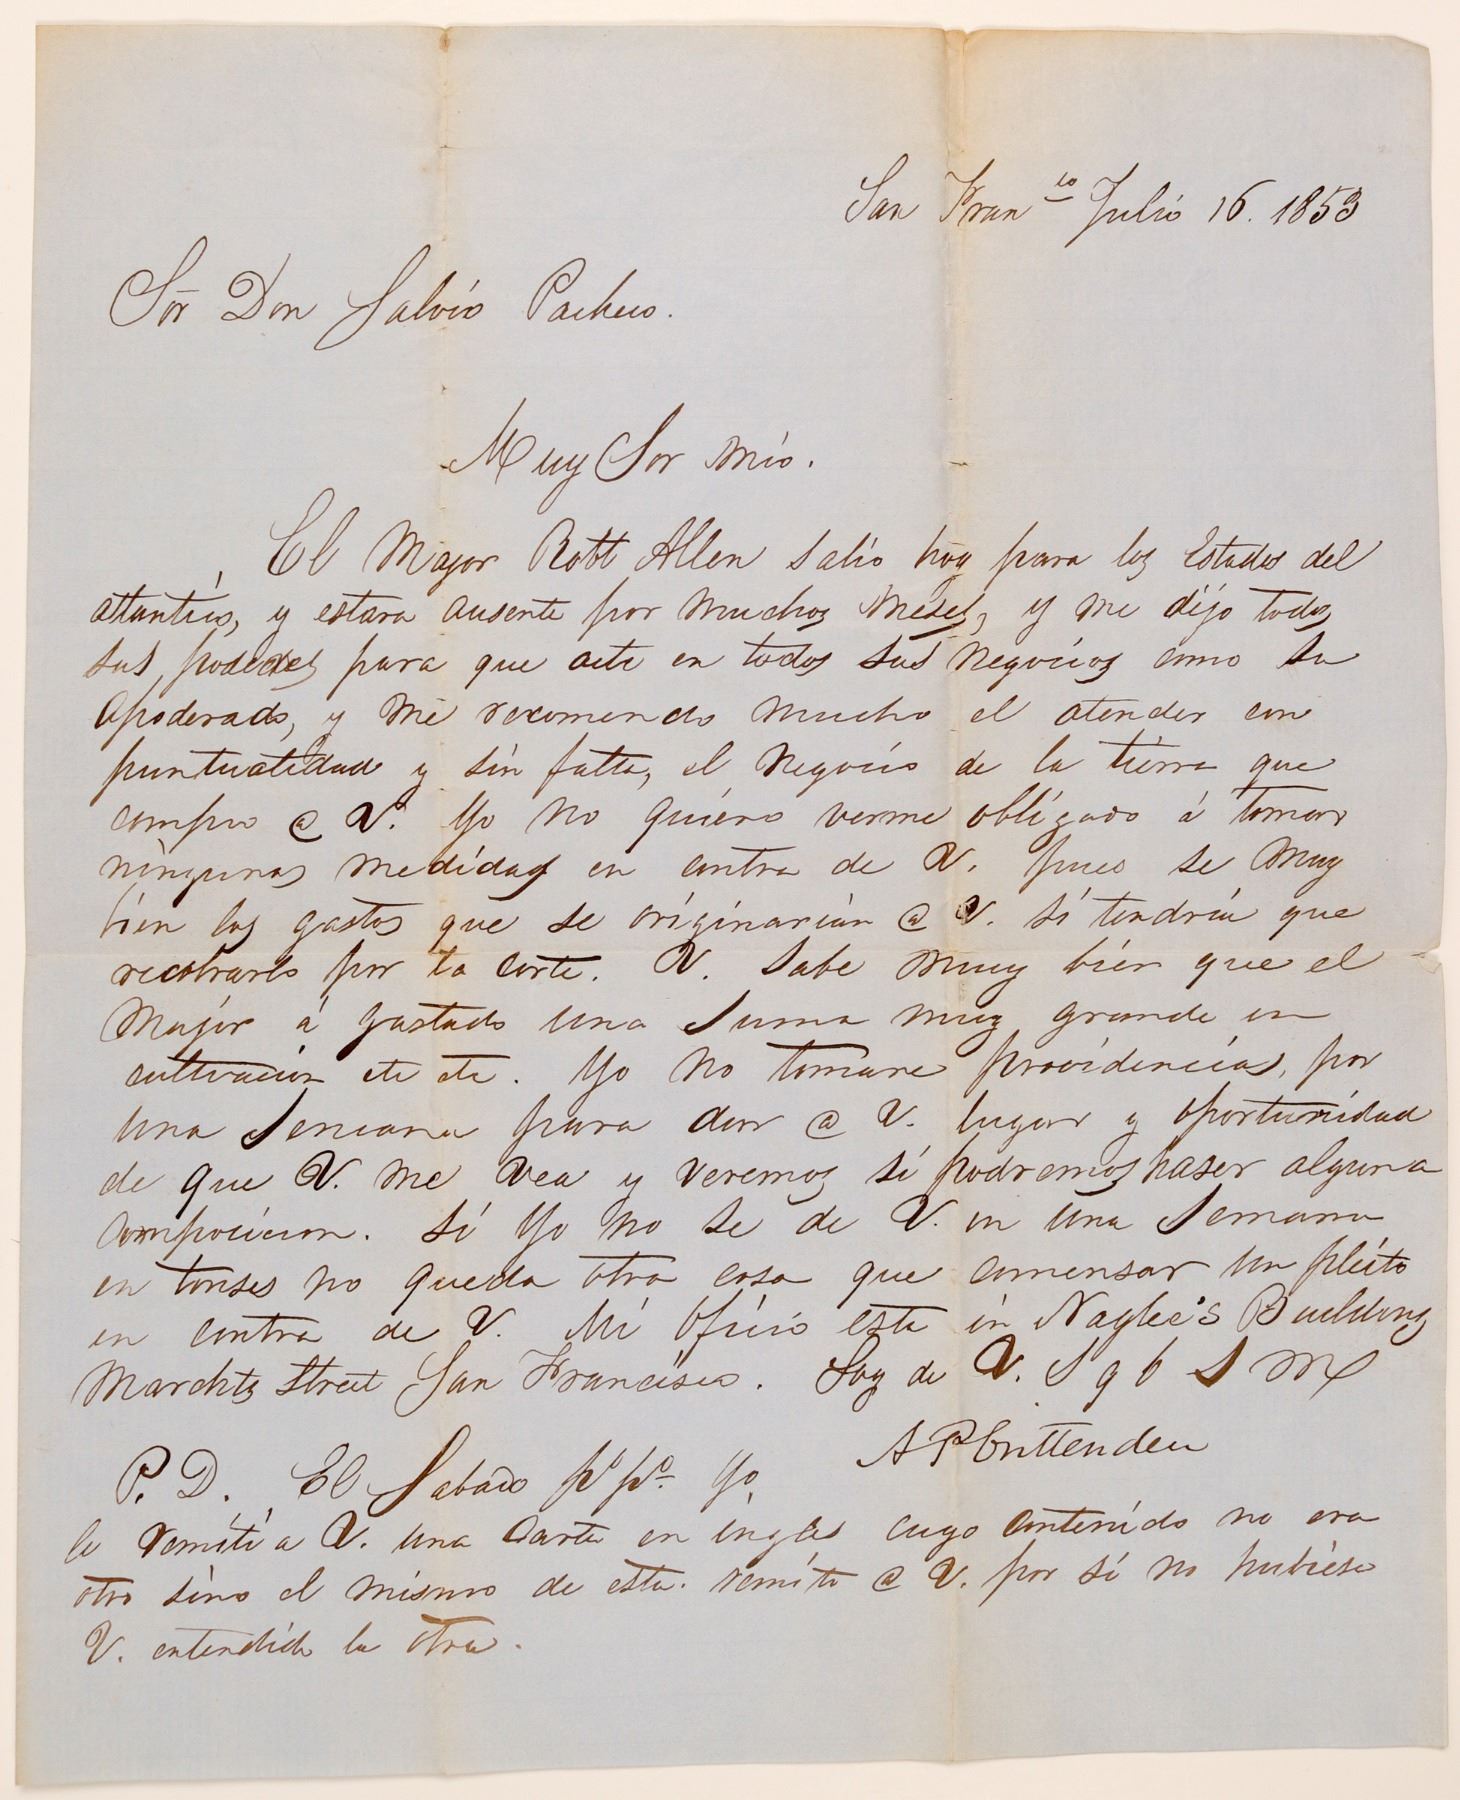 San Fran^co Julio 16. 1853
Sōr Don Salvio Pacheco.
Muy Sor mio.
El Major Robt Allen salio hoy para los Estados del
atlantico, y estara ausente por muchos meses, y me dijo todos
sus poderes para que acte en todos sus negocios como su
apoderado, y me recomendo mucho el atender con
puntualidad y sin falta, el negocio de la tierra que
compro @ V. Yo no quiero verme obligado á tomar
ningunas medidas en contra de V. pues se muy
bien los gastos que se originarian @ V. si tendria que
recobrarlo por la corte. V. sabe muy bien que el
Major á gastado una suma muy grande en
cultivacion etc etc. Yo no tomare providencias, por
una semana para dar @ V. lugar y oportunidad
de que V. me vea y veremos si podremos haser alguna
composicion. Si Yo no se de V. en una semana
en tonses no queda otra cosa que comensar un pleito
en contra de V. Mi oficio esta in Naglee's Building
Marchts Street San Francisco. Soy de V. S q b S M
A P Crittenden
P. D. El Sabado p^o p^o. Yo
le remiti a V. una Carta en ingles cuyo contenido no era
otro sino el mismo de esta. remito @ V. por si no hubiese
V. entendido la otra.